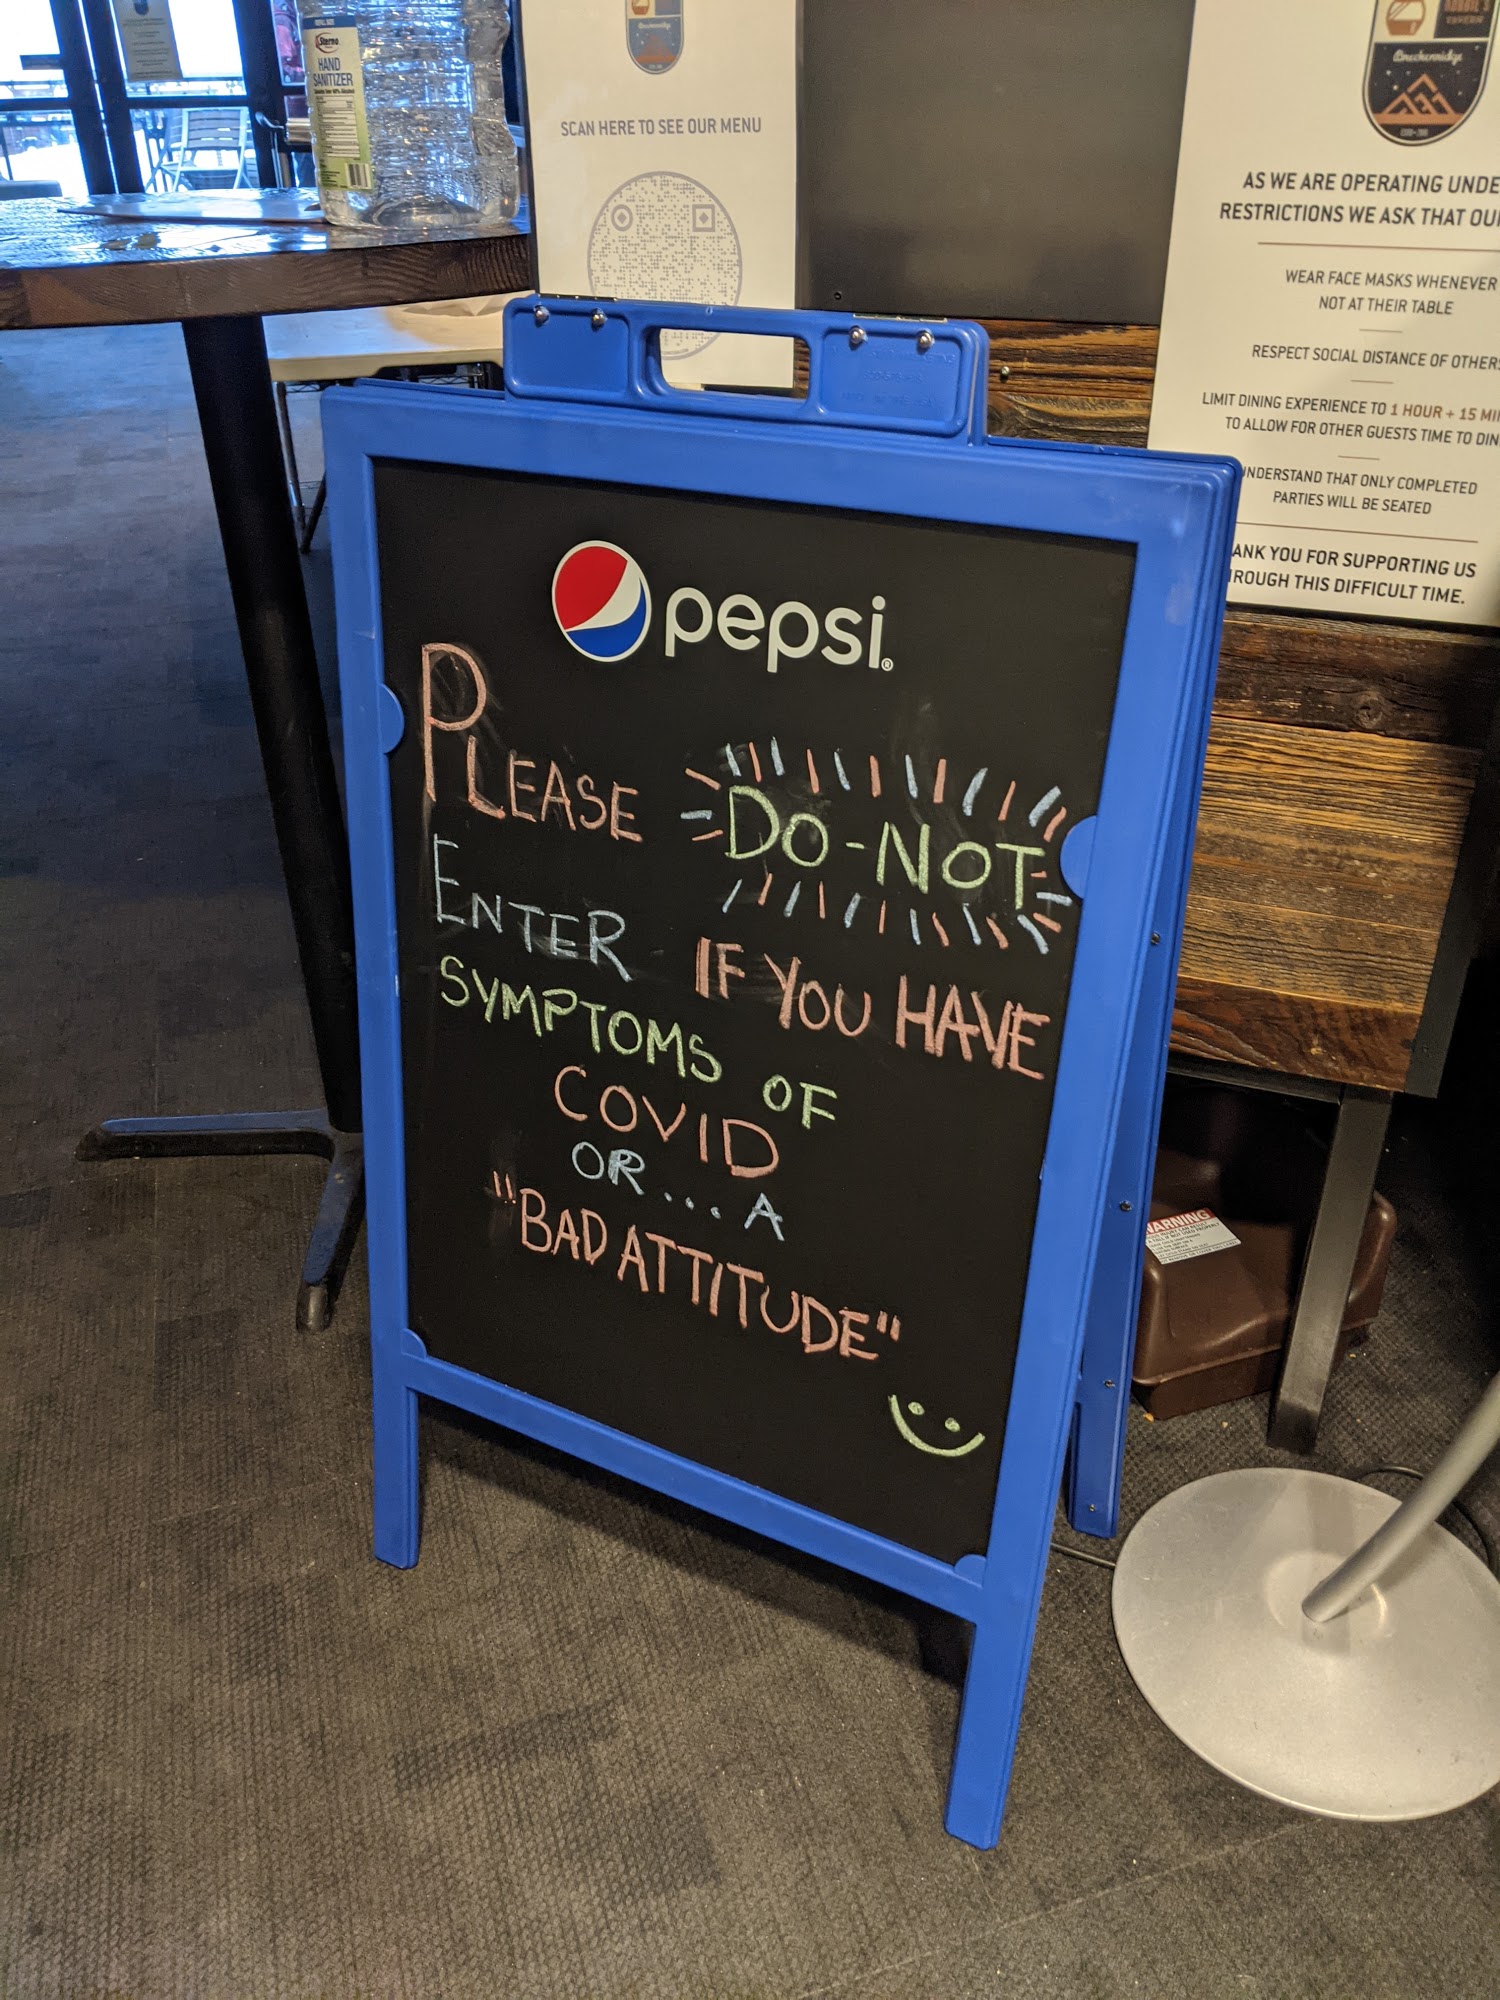 Sterno
HAND
SANITIZER
SCAN HERE TO SEE OUR MENU
TAVERN
Breckenridge
AS WE ARE OPERATING UNDE
RESTRICTIONS WE ASK THAT OU
WEAR FACE MASKS WHENEVER
NOT AT THEIR TABLE
RESPECT SOCIAL DISTANCE OF OTHERS
LIMIT DINING EXPERIENCE TO 1 HOUR + 15 MI
TO ALLOW FOR OTHER GUESTS TIME TO DIN
NDERSTAND THAT ONLY COMPLETED
PARTIES WILL BE SEATED
ANK YOU FOR SUPPORTING US
ROUGH THIS DIFFICULT TIME.
pepsi®
PLEASE DO-NOT
ENTER IF YOU HAVE
SYMPTOMS OF
COVID
OR... A
"BAD ATTITUDE"
WARNING